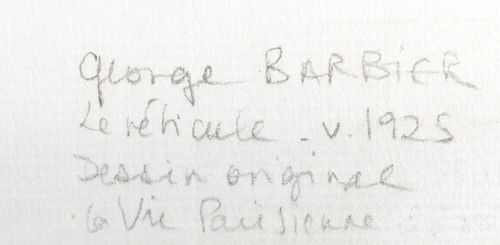 George BARBIER
Le réticule - v. 1925
Dessin original
La Vie Parisienne